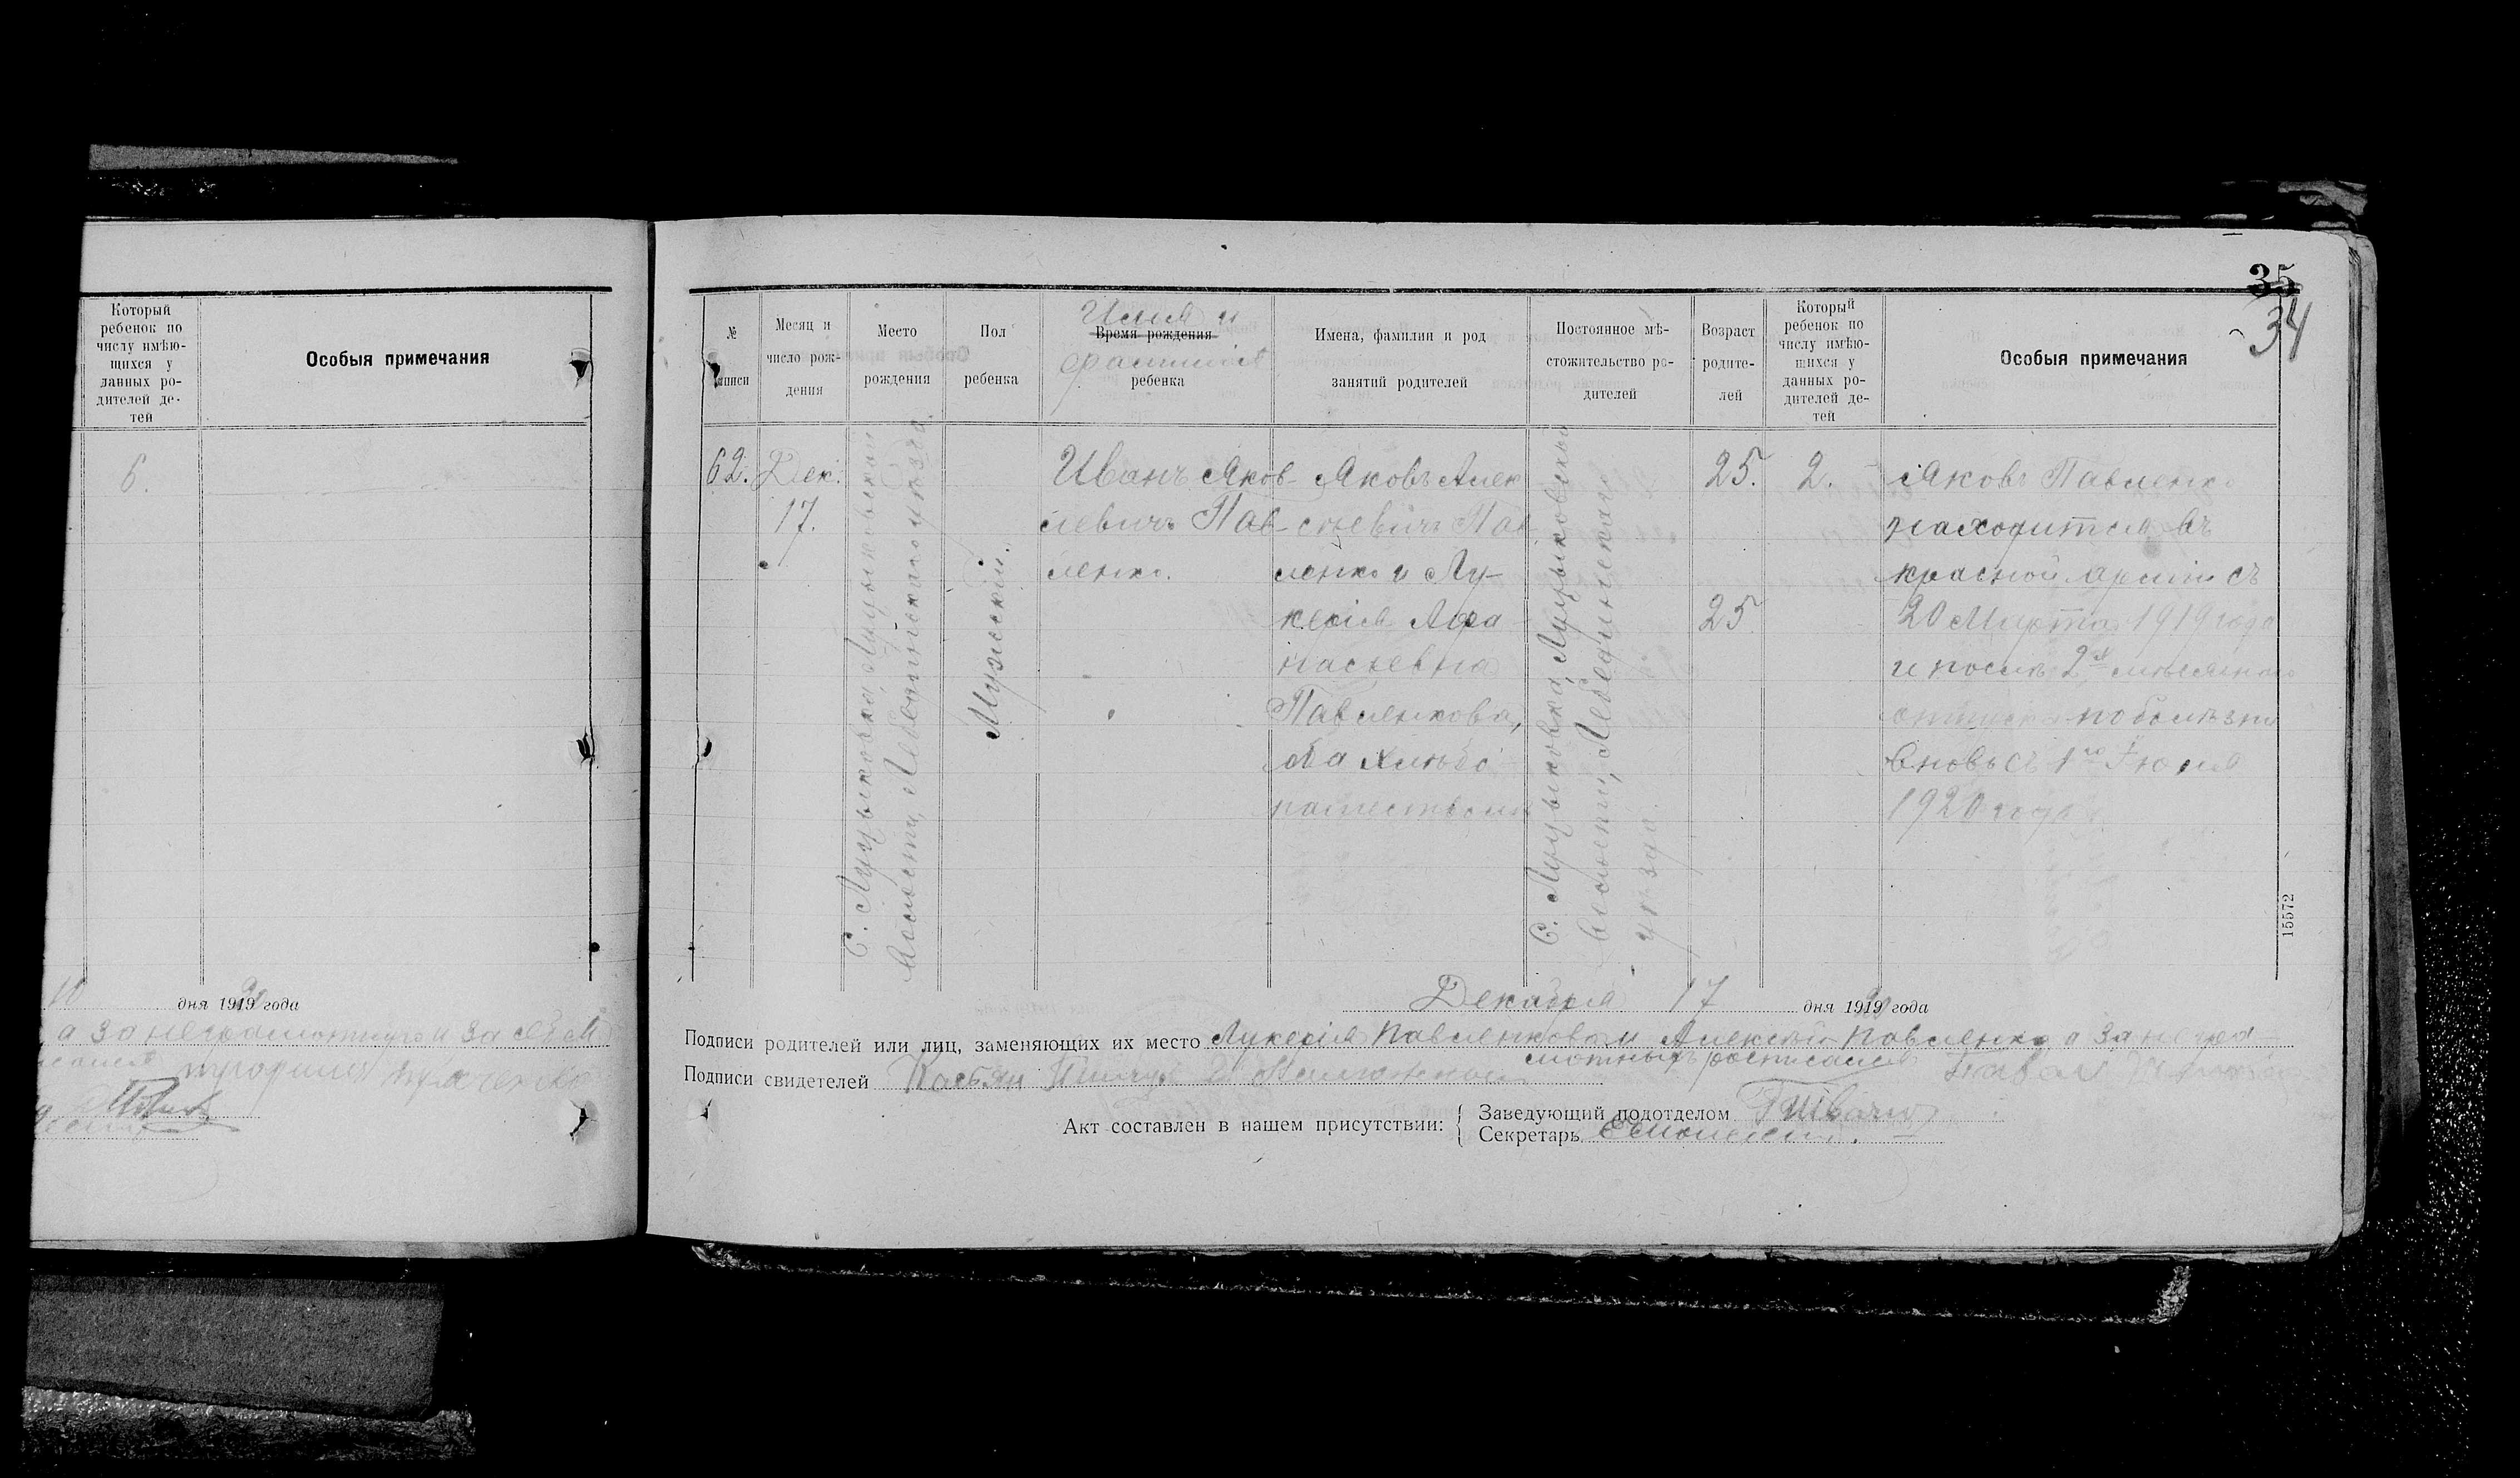 Который
ребенок по
числу имѣю-
щихся у
данных ро-
дителей де-
тей
Особыя примечания
6.
10 дня 1919 года
а за неграмотнуго и за себя
35
34
№
записи
Месяц и
число рож-
дения
Место
рождения
Пол
ребенка
Имя и
Время рождения
фамилия
ребенка
Имена, фамилии и род
занятий родителей
Постоянное мѣ-
стожительство ро-
дителей
Возраст
родите-
лей
Который
ребенок по
числу имѣю-
щихся у
данных ро-
дителей де-
тей
Особыя примечания
62.
Дек.
17.
Мужской.
Иванъ Яков-
левичъ Пав-
ленко.
Яковъ Алек
сѣевичъ Пав
ленко и Лу-
керія Афа
насьевна
Павленкова,
оба хлѣбо
пашествомъ
волости, Лебединскаго
уѣзда.
25.
25
2.
Яковъ Павленко
находится въ
красной арміи съ
20 Марта 1919 года
и послѣ 2х мѣсячнаго
отпуска по болѣзни
вновь съ 1го Іюня
1920 года
15572
Декабря 17 дня 1919 года
Подписи родителей или лиц, заменяющих их место Лукерія Павленкова и Алексѣй Павленко а за негра
мотныхъ росписался
Подписи свидетелей Касьян
Акт составлен в нашем присутствии:
Заведующий подотделом
Секретарь